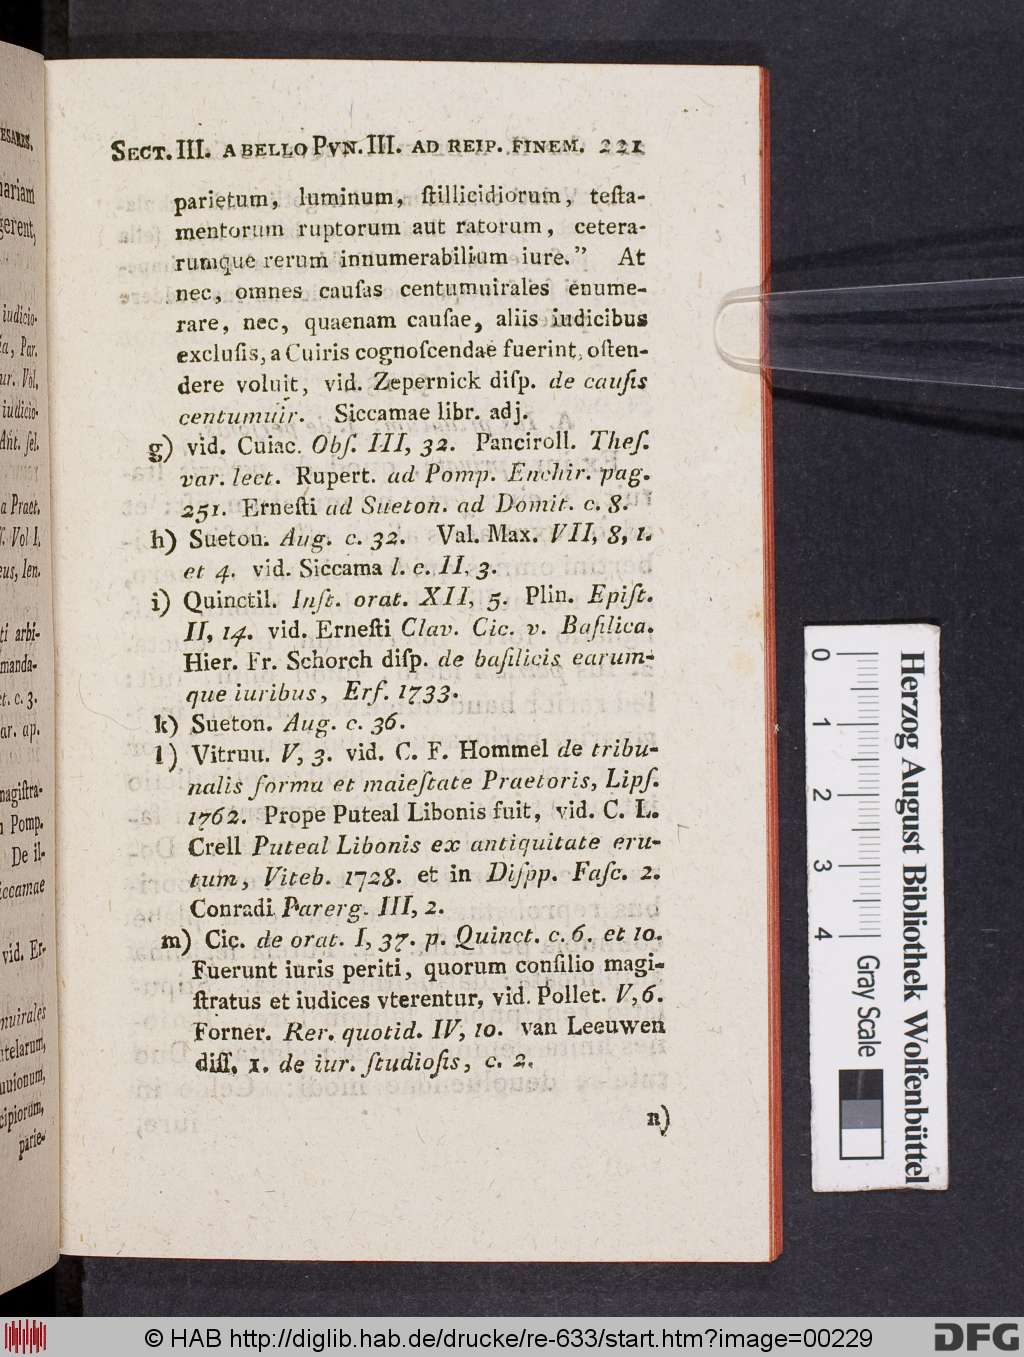 SECT. III. A BELLO PVN. III. AD REIP. FINEM. 221
parietum, luminum, ſtillicidiorum, teſta-
mentorum ruptorum aut ratorum, cetera-
rumque rerum innumerabilium iure.” At
nec, omnes cauſas centumuirales enume-
rare, nec, quaenam cauſae, aliis iudicibus
excluſis, a Cuiris cognoſcendae fuerint, oſten-
dere voluit, vid. Zepernick diſp. de cauſis
centumuir. Siccamae libr. adj.
g) vid. Cuiac. Obſ. III, 32. Panciroll. Theſ.
var. lect. Rupert. ad Pomp. Enchir. pag.
251. Erneſti ad Sueton. ad Domit. c. 8.
h) Sueton. Aug. c. 32. Val. Max. VII, 8, 1.
et 4. vid. Siccama l. c. II, 3.
i) Quinctil. Inſt. orat. XII, 5. Plin. Epiſt.
II, 14. vid. Erneſti Clav. Cic. v. Baſilica.
Hier. Fr. Schorch diſp. de baſilicis earum-
que iuribus, Erf. 1733.
k) Sueton. Aug. c. 36.
l) Vitruu. V, 3. vid. C. F. Hommel de tribu-
nalis forma et maieſtate Praetoris, Lipſ.
1762. Prope Puteal Libonis fuit, vid. C. L.
Crell Puteal Libonis ex antiquitate eru-
tum, Viteb. 1728. et in Diſpp. Faſc. 2.
Conradi Parerg. III, 2.
m) Cic. de orat. I, 37. p. Quinct. c. 6. et 10.
Fuerunt iuris periti, quorum conſilio magi-
ſtratus et iudices vterentur, vid. Pollet. V, 6.
Forner. Rer. quotid. IV, 10. van Leeuwen
diſſ. 1. de iur. ſtudioſis, c. 2.
n)
ESARES.
nariam
gerent,
iudicio-
ia, Par.
ur. Vol.
iudicio-
Ant. ſel.
a Praet.
V. Vol I.
eus, len.
ti arbi-
manda-
ct. c. 3.
ar. ap.
magiſtra-
n Pomp.
De il-
iccamae
vid. Er-
muirales
utelarum,
uuionum,
cipiorum,
parie-
0 1 2 3 4
Herzog August Bibliothek Wolfenbüttel
Gray Scale
© HAB http://diglib.hab.de/drucke/re-633/start.htm?image=00229
DFG